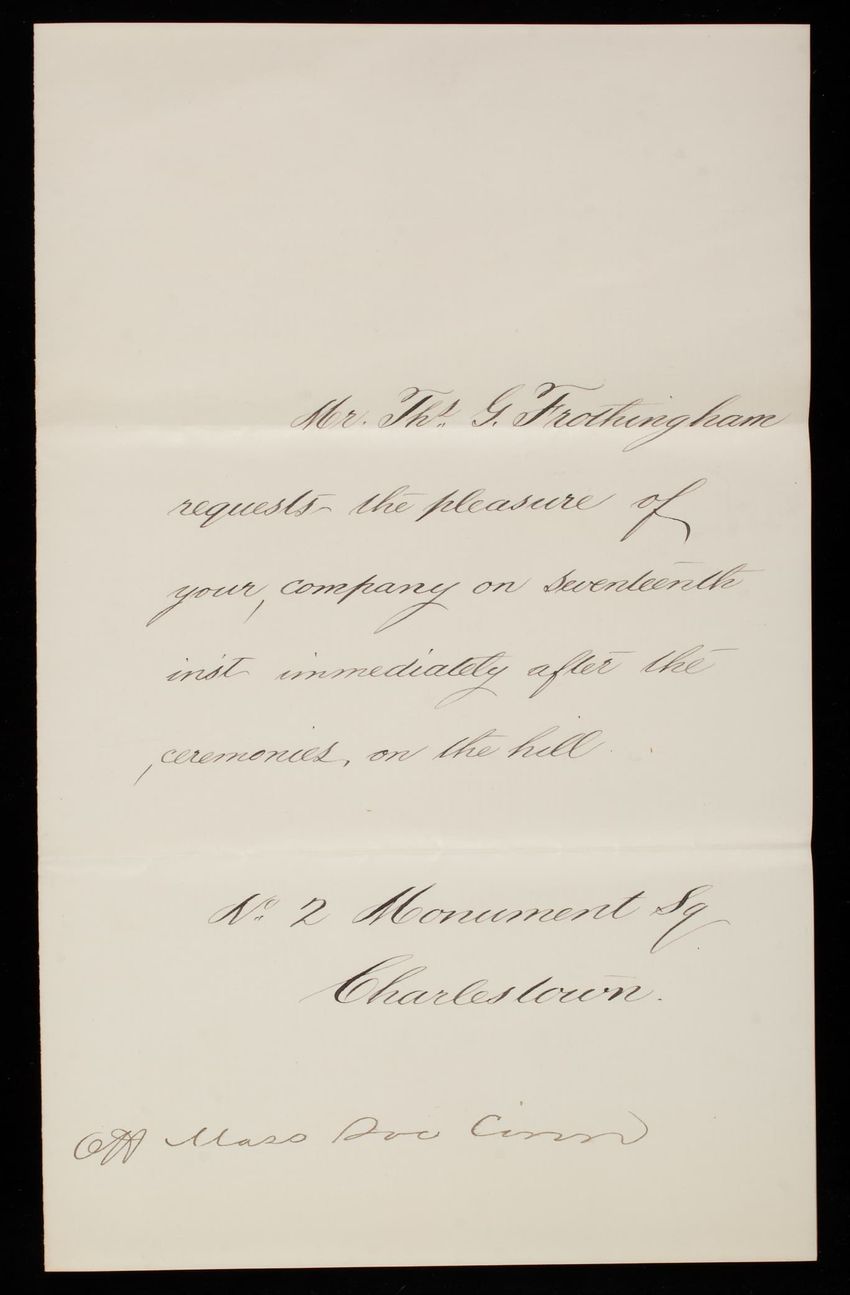 Mr. Ths. G. Frothingham
requests the pleasure of
your, company on seventeenth
inst immediately after the
,ceremonies, on the hill
No. 2 Monument Sq
Charlestown.
Off Mass Soc Cinn